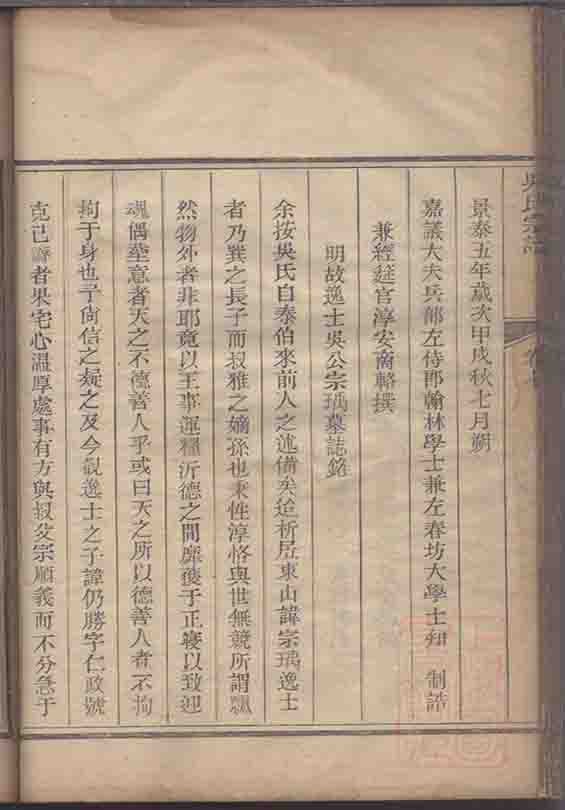 吳氏宗譜
景泰五年歲次甲戌秋七月朔
嘉議大夫兵部左侍郎翰林學士兼左春坊大學士知 制誥
兼經筵官淳安商輅撰
明故逸士吳公宗瑀墓誌銘
余按吳氏自泰伯來前人之述備矣迨析居東山諱宗瑀逸士
者乃巽之長子而叔雅之嫡孫也秉性淳恪與世無競所謂飄
然物外者非耶竟以王事運糧沂德之間靡獲于正寢以致迎
魂偶塟意者天之不德善人乎或曰天之所以德善人者不拘
拘于身也予尚信之疑之及今觀逸士之子諱仍勝字仁政號
克己齋者果宅心溫厚處事有方與叔父宗順義而不分急于